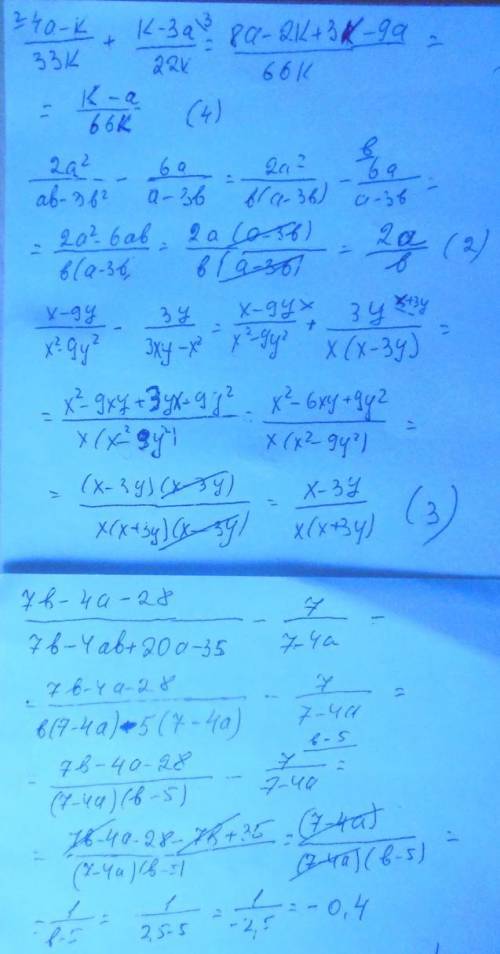 ²4a-к/33к + к-3a\³/22к = 8a-2к+3к-9a/66к =
= к-a/66к (4)
2a²/ab-3в² - 6a/a-3в = 2a²/в(a-3в) - 6a\в/a-3в =
= 2a²-6aв/в(a-3в = 2a(a-3в)/в(a-3в) = 2a/в (2)
x-9y/x²-9y² - 3y/3xy-x² = x-9y\x/x²-9y² + 3y\x+3y/x(x-3y) =
= x²-9xy+3yx+9y²/x(x²-9y²) = x²-6xy+9y²/x(x²-9y²) =
= (x-3y)(x-3y)/x(x+3y)(x-3y) = x-3y/x(x+3y) (3)
7в-4a-28/7в-4aв+20a-35 - 7/7-4a =
= 7в-4a-28/в(7-4a)-5(7-4a) - 7/7-4a =
= 7в-4a-28/(7-4a)(в-5) - 7\в-5/7-4a =
= 7в-4a-28-7в+35/(7-4a)(в-5) = (7-4a)/(7-4a)(в-5) =
= 1/в-5 = 1/2,5-5 = 1/-2,5 = -0,4